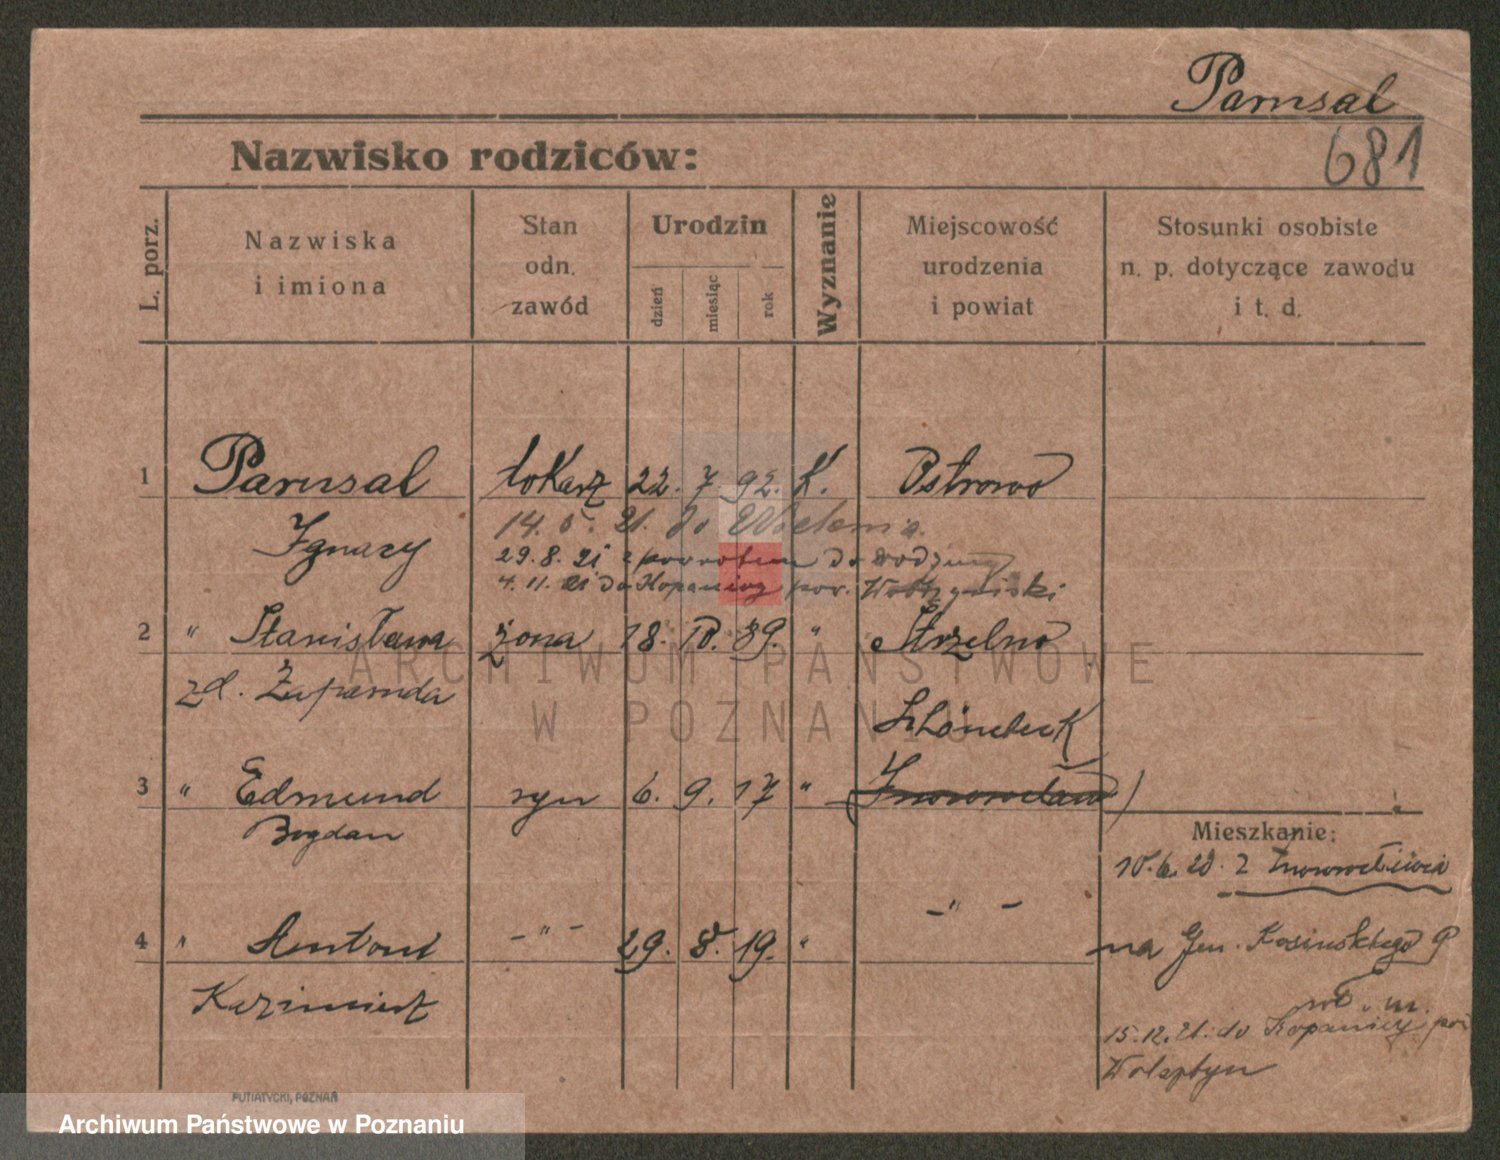 Parusal
681
Nazwisko rodziców:
L. porz.
Nazwiska
i imiona
Stan
odn.
zawód
Urodzin
dzień
miesiąc
rok
Wyznanie
Miejscowość
urodzenia
i powiat
Stosunki osobiste
n. p. dotyczące zawodu
i t. d.
1 Parusal tokarz 22. 7 92. K. Ostrowo
Ignacy 14. 5. 21. do
29.8.21 z powrotem do rodziny
4. 11. 21 do Kopanicy pow. Wolsztyński
2 " Stanisława żona 18. 10. 89. " Strzelno
zd.
Schönebeck
3 " Edmund syn 6. 9. 17 " (Inowrocław)
Bogdan
Mieszkanie:
10.6.20. z Inowrocławia
4 " Antoni – " – 29. 8. 19. " – " –
na Gen. Kosińskiego 9
Kazimierz
15.12.21. do Kopanicy pow
Wolsztyn
PUTIATYCKI, POZNAŃ
ARCHIWUM PAŃSTWOWE
W POZNANIU
Archiwum Państwowe w Poznaniu